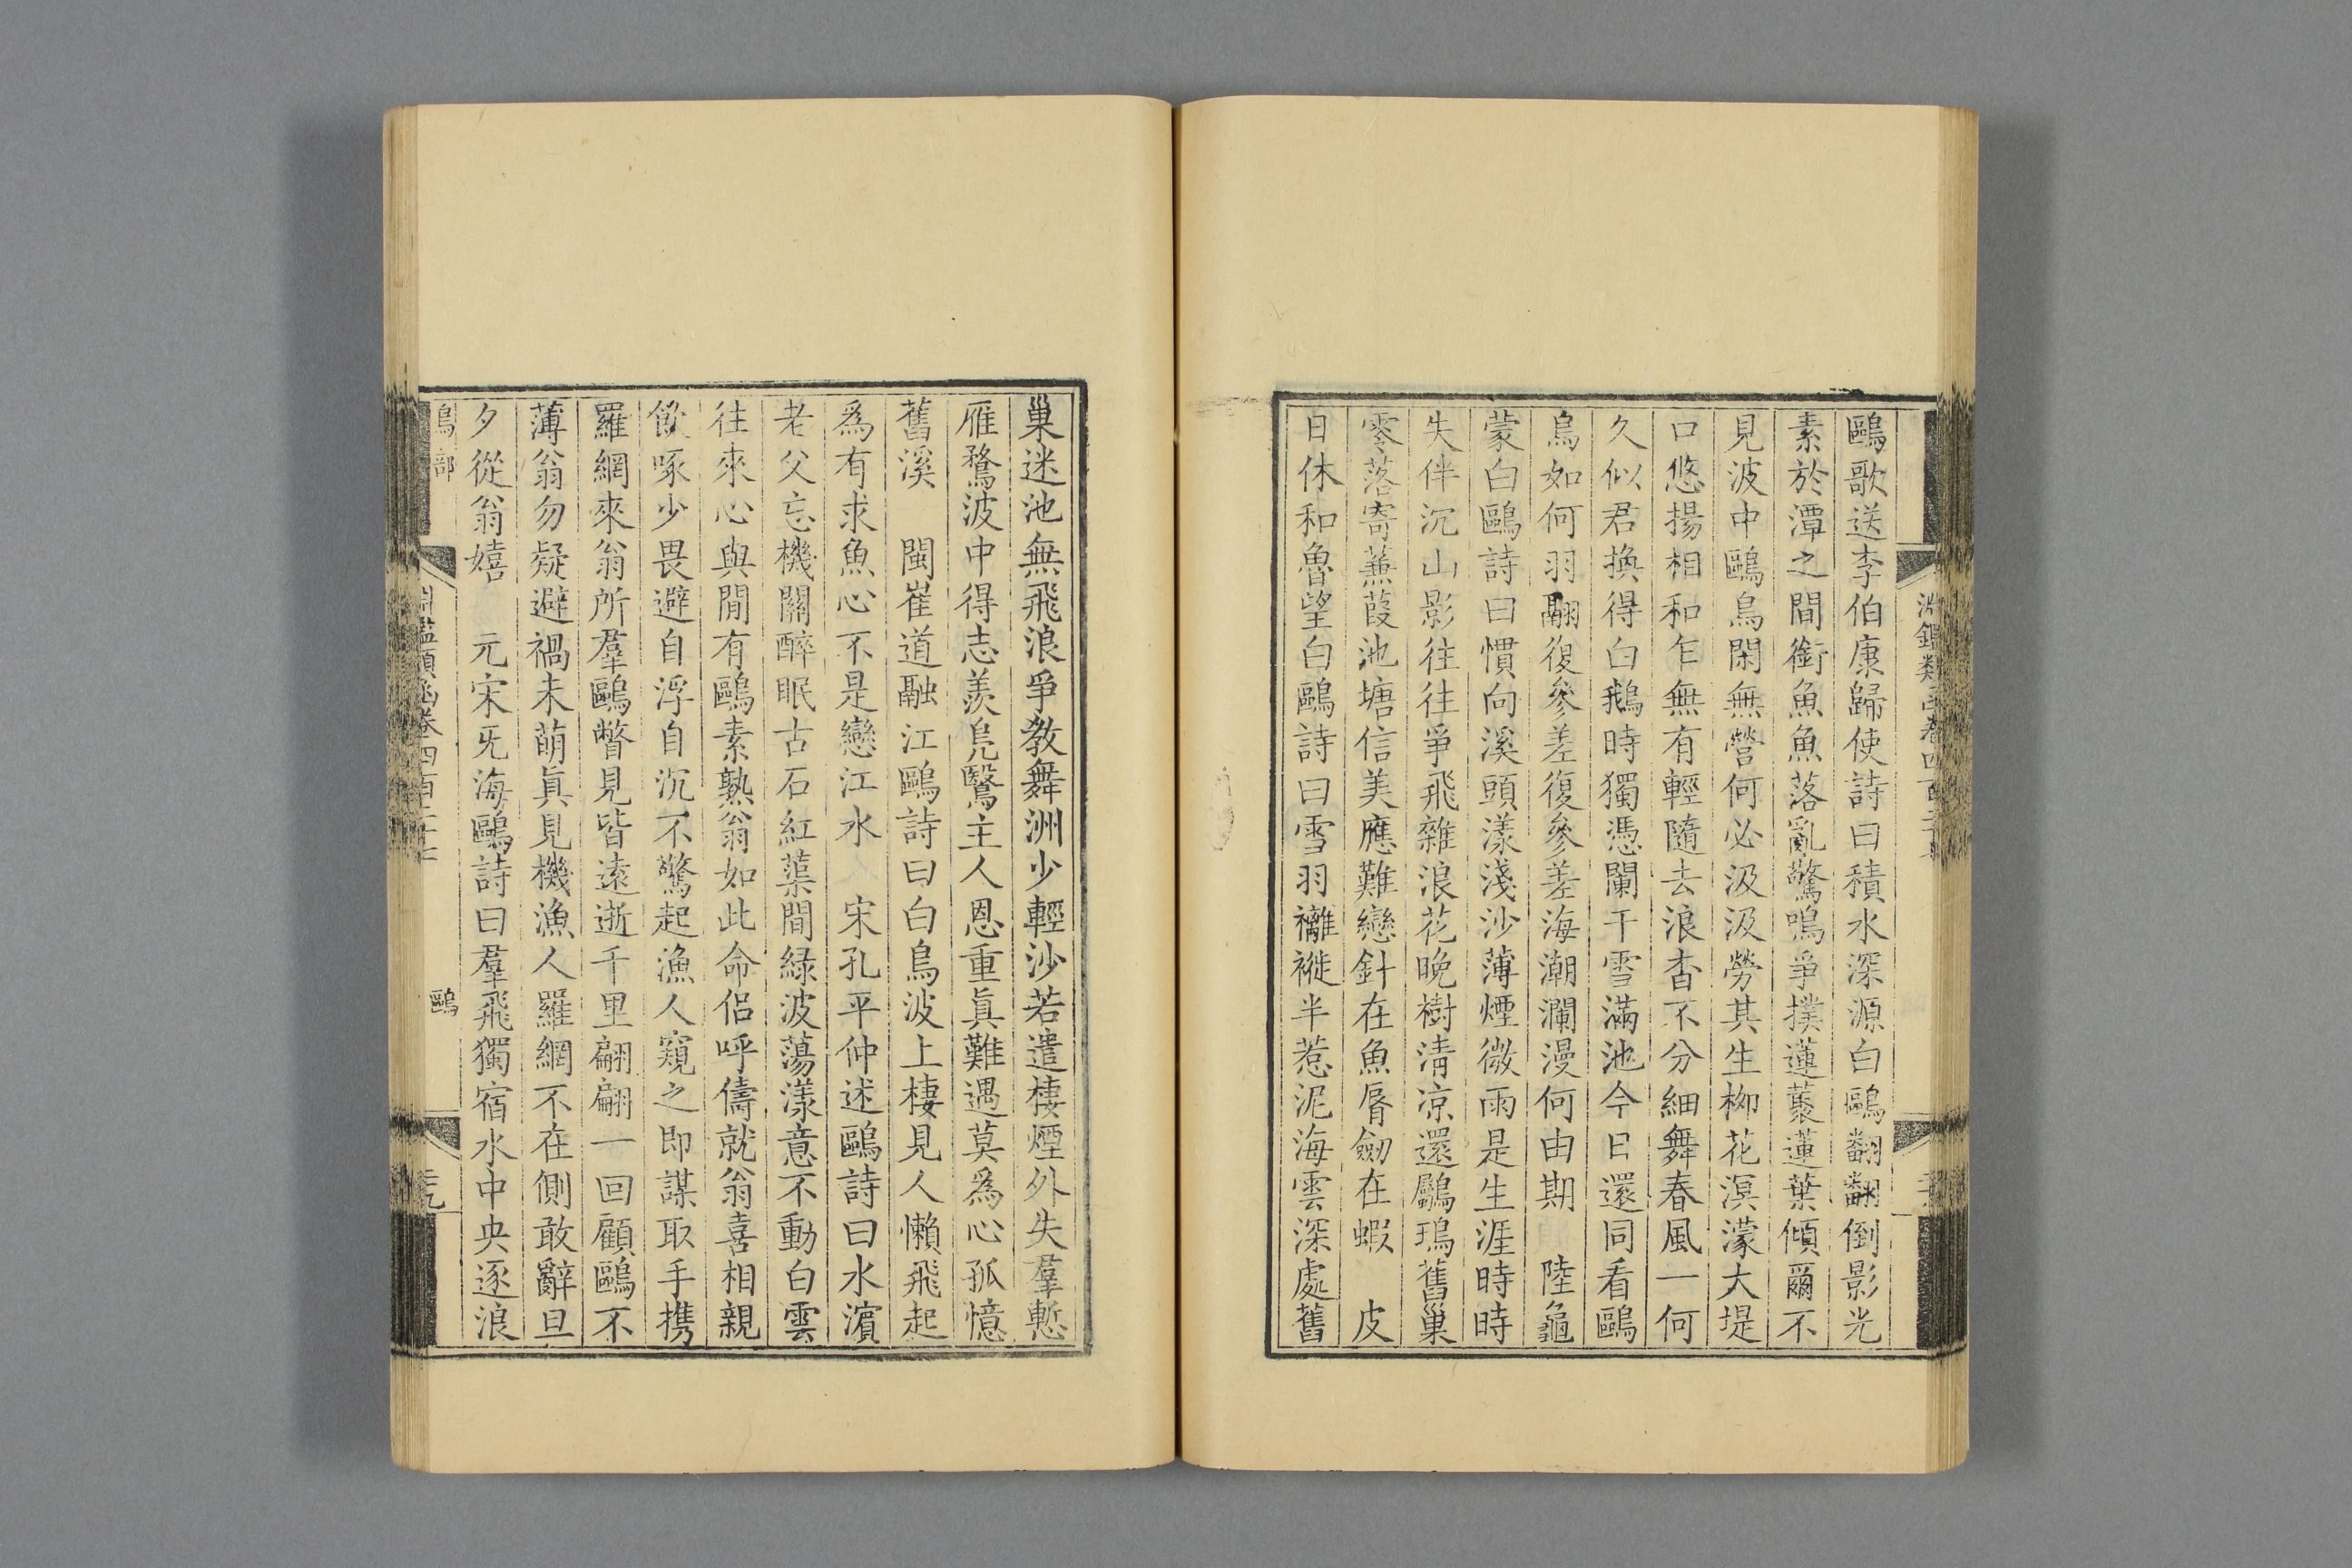 鷗歌送李伯康歸使詩曰積水深源白鷗翻翻倒影光
素於潭之間銜魚魚落亂驚鳴爭撲蓮叢蓮葉傾爾不
見波中鷗鳥閑無營何必汲汲勞其生栁花溟濛大堤
口悠揚相和乍無有輕隨去浪杳不分細舞春風一何
久似君換得白鵝時獨憑闌干雪滿池今日還同看鷗
鳥如何羽翮復參差復參差海潮瀾漫何由期　陸龜
蒙白鷗詩曰慣向溪頭漾淺沙薄煙微雨是生涯時時
失伴沉山影往往爭飛雜浪花晚樹清凉還鸀鳿舊巢
零落寄蒹葭池塘信美應難戀針在魚脣劒在蝦　皮
日休和魯望白鷗詩曰雪羽襹褷半惹泥海雲深處舊
巢迷池無飛浪爭教舞洲少輕沙若遣棲煙外失羣慙
雁鶩波中得志羨鳧鷖主人恩重眞難遇莫爲心孤憶
舊溪　閩崔道融江鷗詩曰白鳥波上棲見人懶飛起
爲有求魚心不是戀江水　宋孔平仲述鷗詩曰水濱
老父忘機關醉眠古石紅蕖間綠波蕩漾意不動白雲
往來心與閒有鷗素熟翁如此命侶呼儔就翁喜相親
飲啄少畏避自浮自沉不驚起漁人窺之即謀取手携
羅網來翁所羣鷗瞥見皆遠逝千里翩翩一回顧鷗不
薄翁勿疑避禍未萌眞見機漁人羅網不在側敢辭旦
夕從翁嬉　元宋旡海鷗詩曰羣飛獨宿水中央逐浪
鳥部
鷗